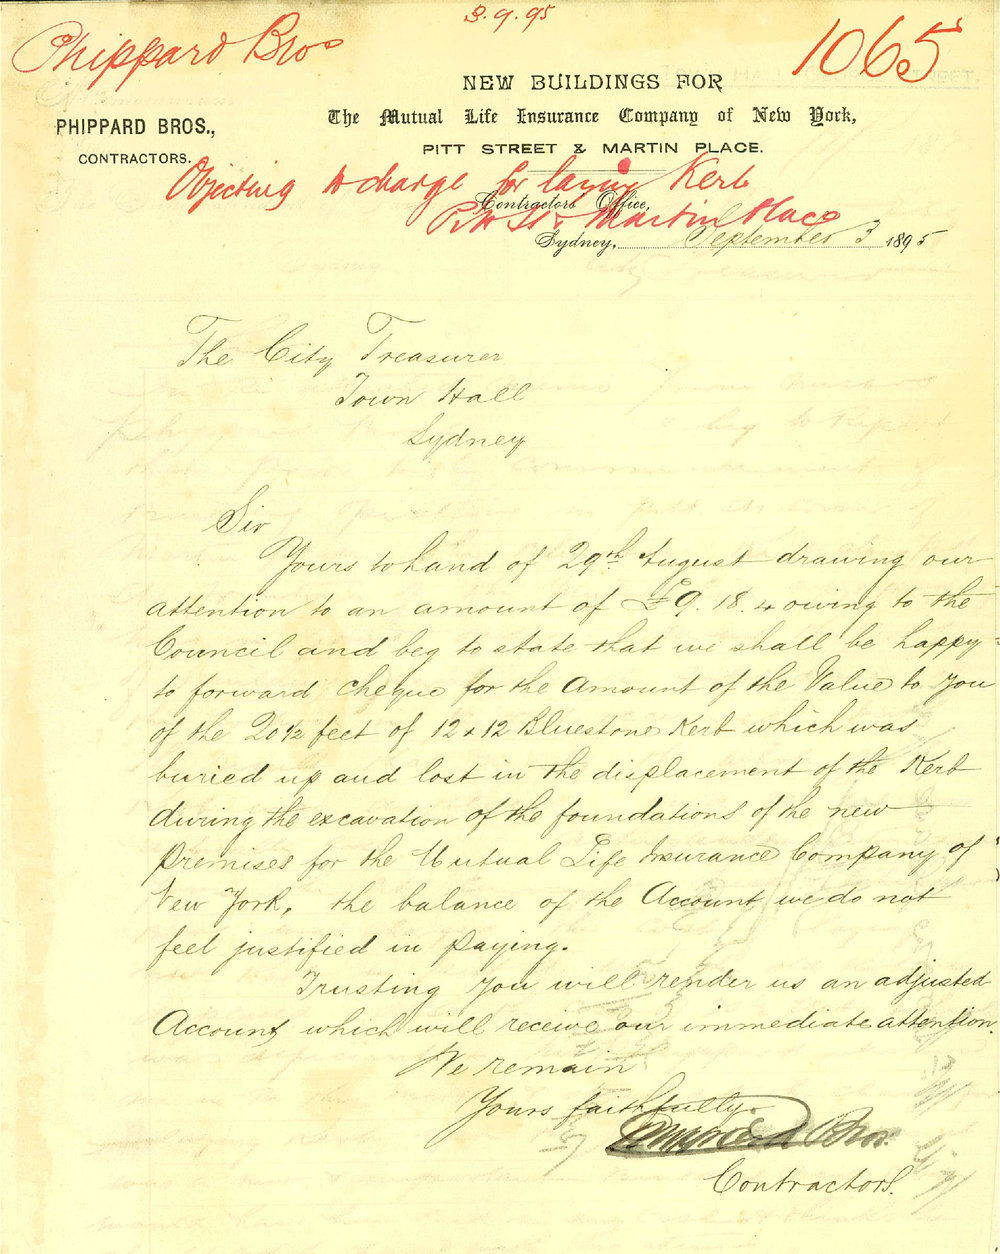 3.9.95
Phippard Bros
1065
NEW BUILDINGS FOR
The Mutual Life Insurance Company of New York,
PITT STREET & MARTIN PLACE.
PHIPPARD BROS.,
CONTRACTORS.
Objecting to charge for laying Kerb
Pitt St & Martin Place
Contractors' Office,
Sydney, September 3 1895
The City Treasurer
Town Hall
Sydney
Sir
Yours to hand of 29th August drawing our
attention to an amount of £9.18.4 owing to the
Council and beg to state that we shall be happy
to forward cheque for the amount of the Value to you
of the 20 1/2 feet of 12 x 12 Bluestone Kerb which was
buried up and lost in the displacement of the Kerb
during the excavation of the foundations of the new
premises for the Mutual Life Insurance Company of
New York, the balance of the Account we do not
feel justified in paying.
Trusting you will render us an adjusted
Account which will receive our immediate attention.
We remain
Yours faithfully
Phippard Bros.
Contractors.